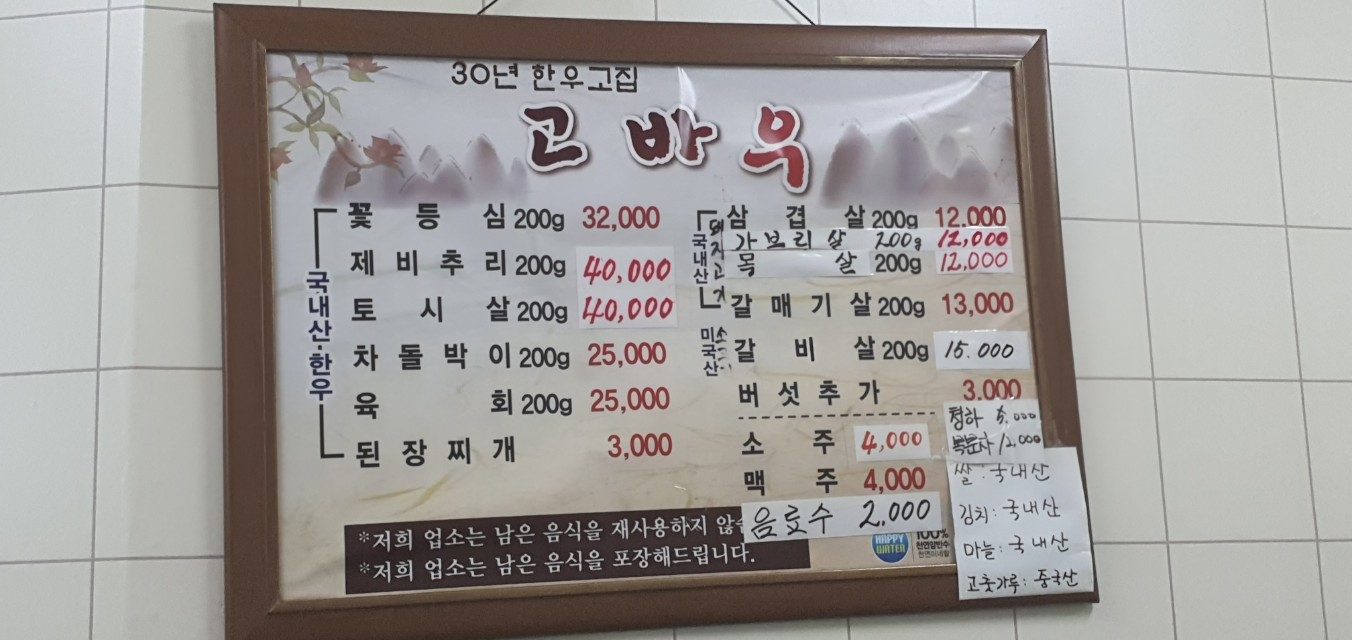 30년 한우고집
고바우
국내산·한우
꽃등심 200g 32,000
제비추리 200g 40,000
토시살 200g 40,000
차돌박이 200g 25,000
육회 200g 25,000
된장찌개 3,000
국내산
돼지고기
삼겹살 200g 12,000
가브리살 200g 12,000
목살 200g 12,000
갈매기살 200g 13,000
미국산
갈비살 200g 15.000
버섯추가 3,000
소주 4,000
맥주 4,000
음료수 2.000
청하 5.000
복분자 12.000
쌀:국내산
김치:국내산
마늘:국내산
고춧가루:중국산
*저희 업소는 남은 음식을 재사용하지
*저희 업소는 남은 음식을 포장해드립니다.
HAPPY WATER
100%